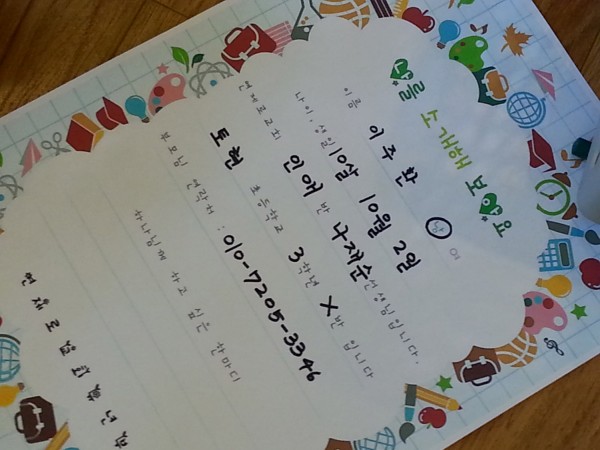 나를 소개해 보아요
이름 이주한 남 여
나이, 생일 10살 10월 2일
연제로교회 인애 반 구재순 선생님입니다.
토현 초등학교 3학년 X반 입니다
부모님 연락처 : 010-7205-3346
하나님께 하고 싶은 한마디
연제로교회